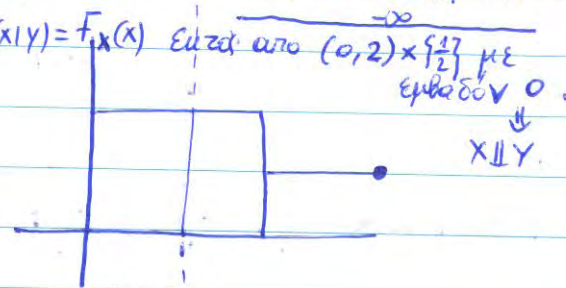 -∞
x|y) = f_X(x) εκτός από (0,2)×{1/2} με
εμβαδόν 0.
⇓
X⫫Y.